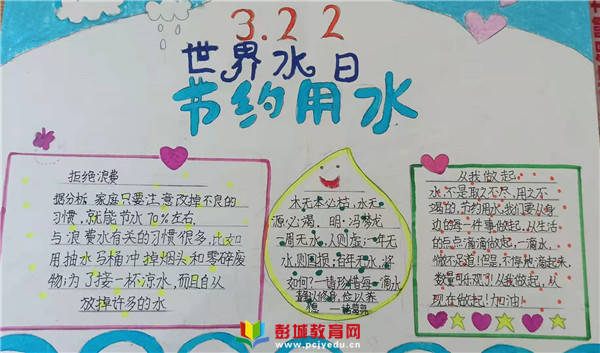 3.22
世界水日
节约用水
拒绝浪费
据分析，家庭只要注意改掉不良的
习惯，就能节水70%左右
与浪费水有关的习惯很多，比如
用抽水马桶冲掉烟头和零碎废
物；为了接一杯凉水，而白白从
放掉许多的水
木无本必枯，水无
源必竭，明：冯梦龙
一周无水，人则
水则国损，百年无水，将
如何？一请珍惜每一滴水
从我做起
水不是取之不尽，用之不
竭的，节约用水，我们要从身
边的每一件事做起，从生活
的点点滴滴做起，一滴水，
微不足道！但是，不停地滴起来，
数量可观了！从我做起，从
现在做起！加油！
彭城教育网
www.pcjyedu.cn